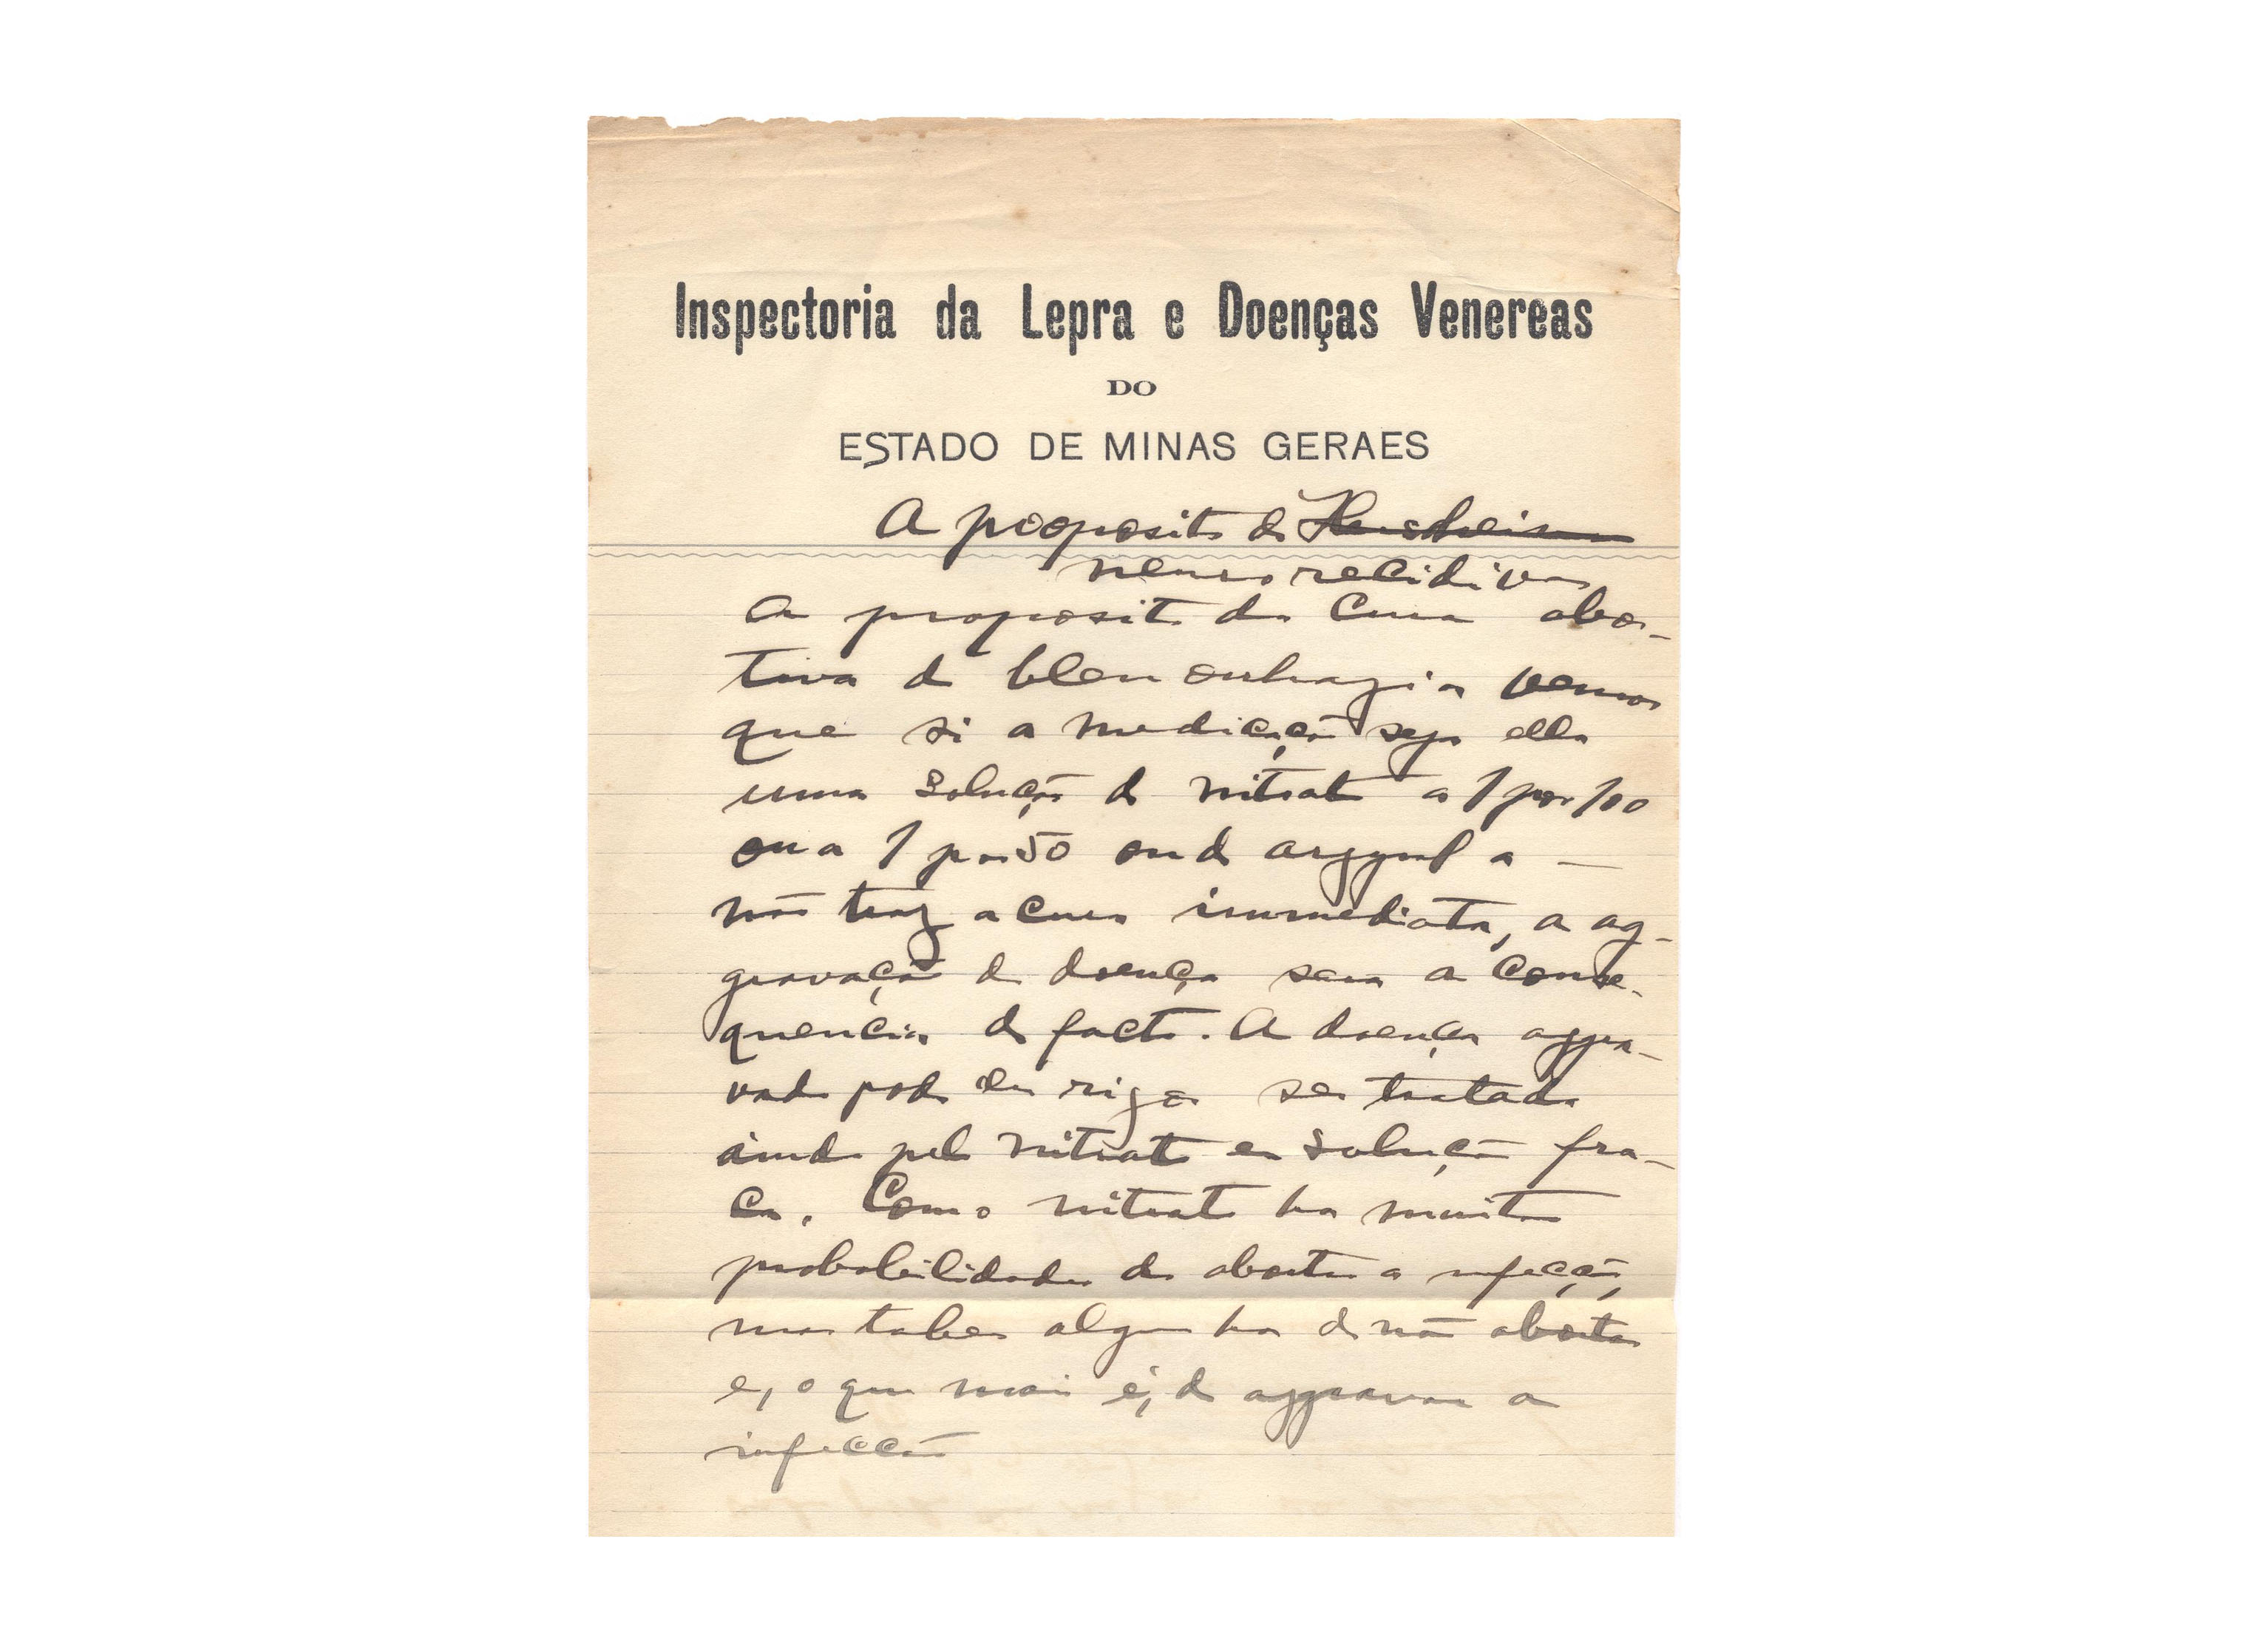 Inspectoria da Lepra e Doenças Venereas
DO
ESTADO DE MINAS GERAES
A proposito de
neuro recidivas
A proposito da Cura abor-
tiva da blenorrhagia vemos
que si a medicação seja ella
uma solução de nitrato a 1 por 100
ou a 1 por 50 ou de argyrol a —
não traz a cura immediata, a ag-
gravação da doença sera a conse-
quencia do facto. A doença aggra-
vada pode em rigor ser tratada
ainda pelo nitrato em solução fra-
ca. Com o nitrato ha muitas
probabilidades de abortar a infecção,
mas tabem alguma ha de não abortar
e, o que mais é, de aggravar a
infecção